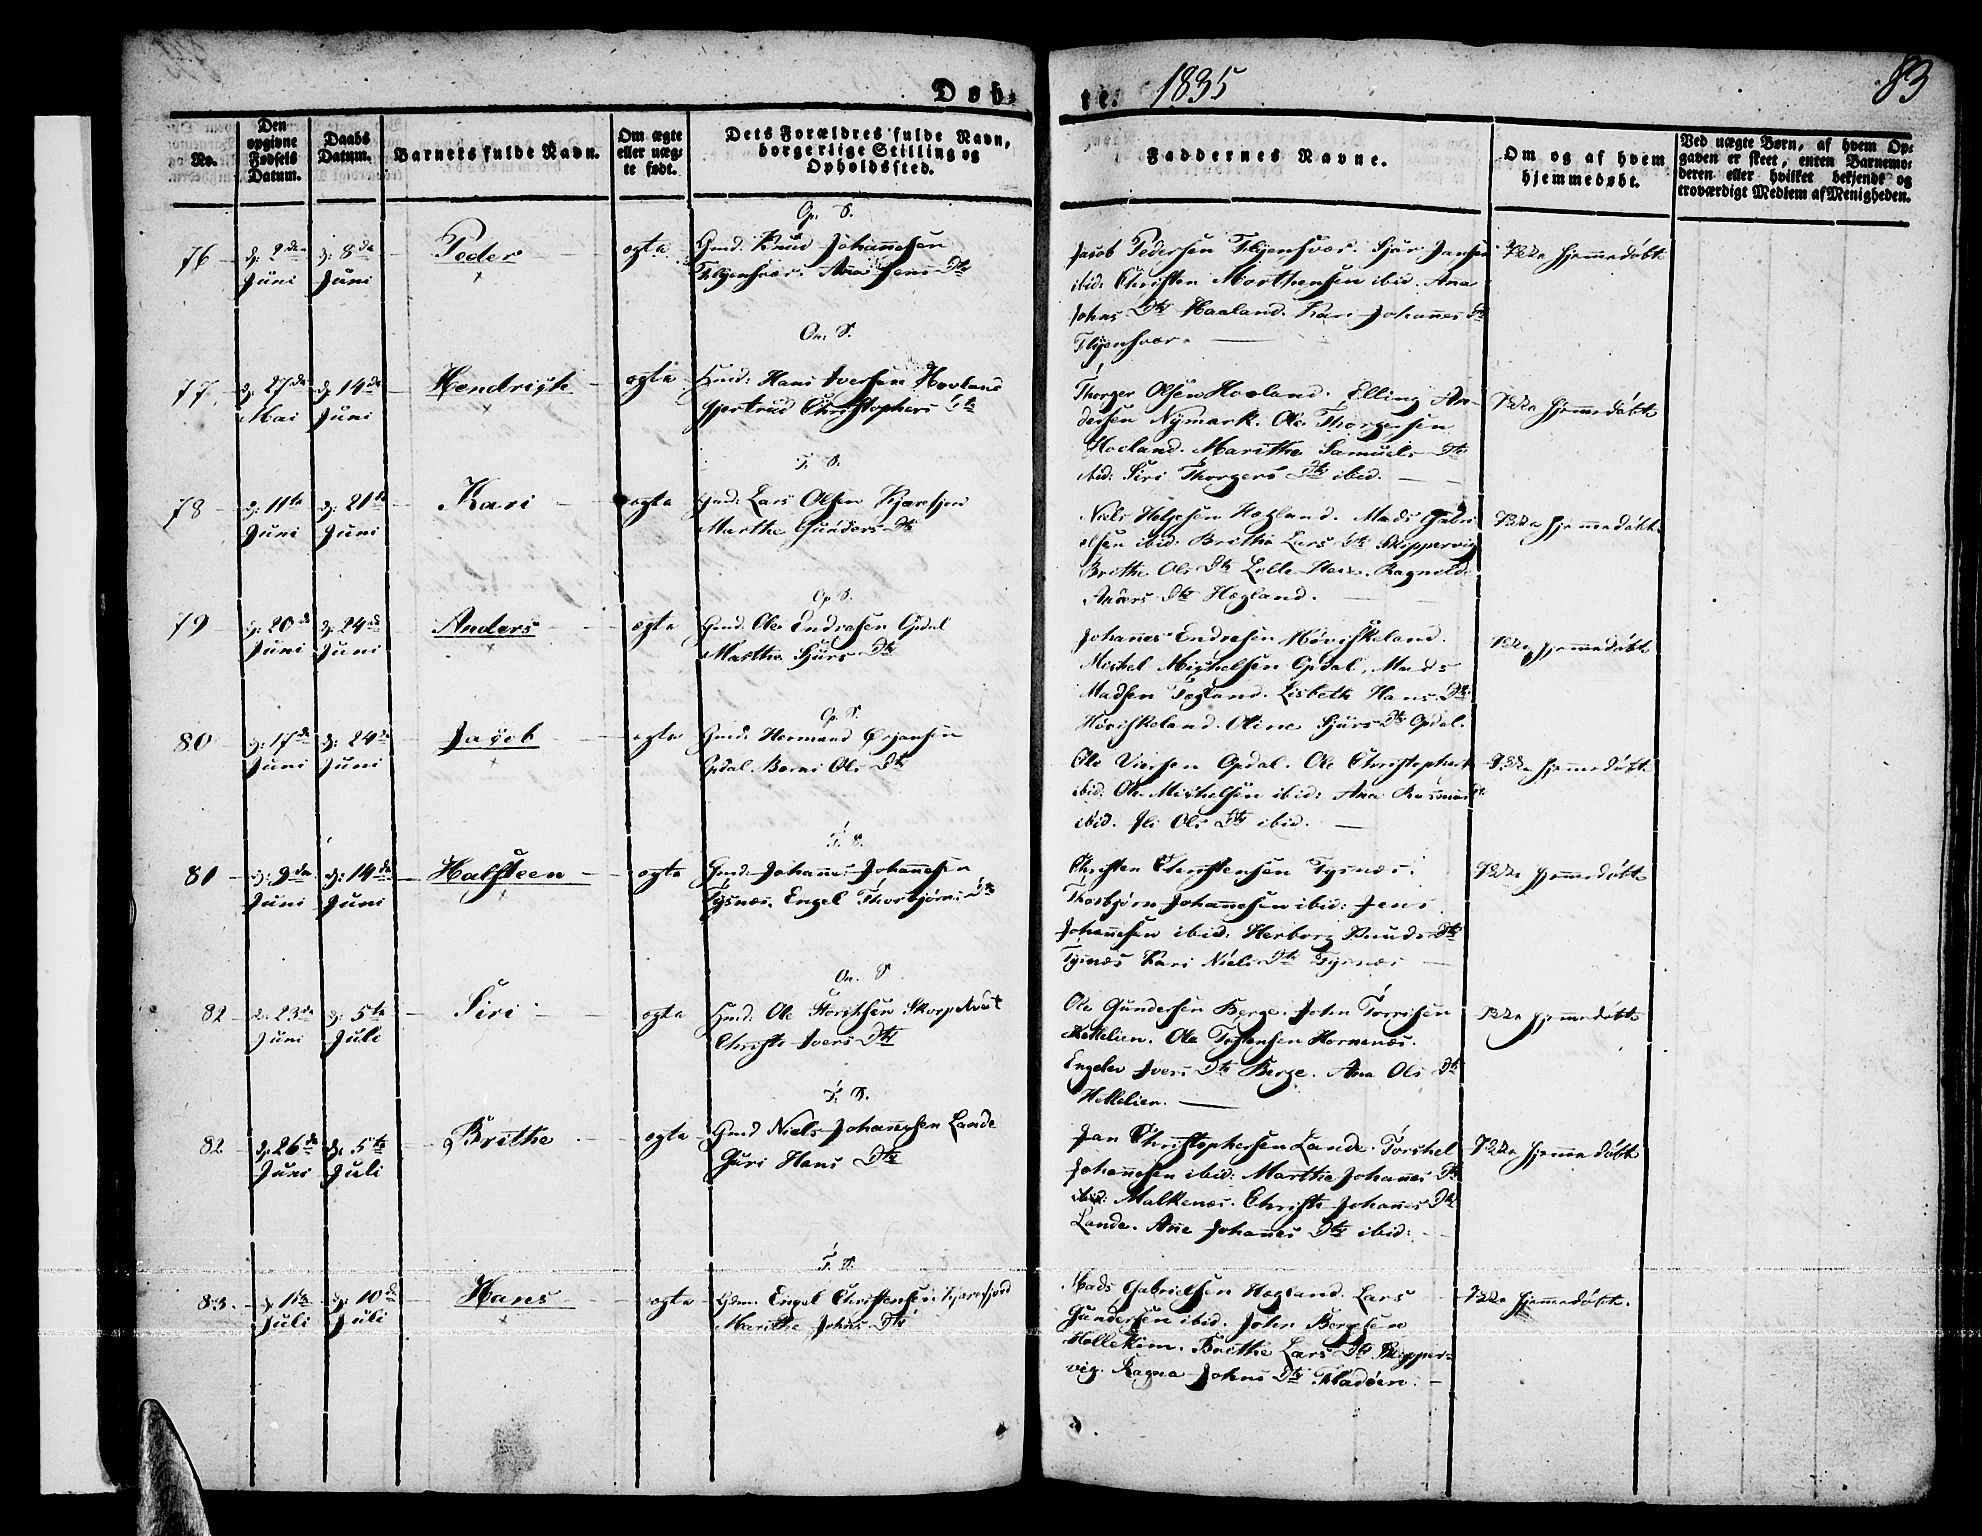 Døb-
te. 1835
83
No.
Den opgivne Fødsels Datum.
Daabs Datum.
Barnets fulde Navn.
Om ægte eller uæg- te født.
Dets Forældres fulde Navn, borgerlige Stilling og Opholdssted.
Faddernes Navne.
Om og af hvem hjemmedøbt.
Ved uægte Børn, af hvem Op- gaven er skeet, enten Barnemo- deren eller hvilket bekjendt og troværdigt Medlem af Menigheden.
Op. S.
76 d: 2den Juni d: 8de Juni Peder ægte Gmd: Knud Johannesen
Flyensvær. Ana Jens Dtr
Jacob Pedersen Flyensvær. Sjur Jansen
ibid: Christen Morthensen ibid. Ana
Johns Dtr Haaland. Kari Johannes Dtr
Flyensvær.
Ikke hjemmedøbt
On. S.
77 d: 27de Mai d: 14de Juni Hendrich ægte Hmd: Hans Iversen Hovland
Gjertrud Christophers Dtr
Thorger Olsen Hovland. Elling An-
dersen Nymark. Ole Thorgersen
Hovland. Marithe Samuels Dtr
ibid: Siri Thorgers Dtr ibid.
Ikke hjemmedøbt
T. S.
78 d: 11te Juni d: 21de Juni Kari ægte Gmd: Lars Olsen Kjærefjor
Marthe Gunders Dtr
Niels Heljesen Hægland. Mads Gabri-
elsen ibid. Brithe Lars Dtr Skippervig
Brithe Ols Dtr Ragnild
Anders Dtr Hægland.
Ikke hjemmedøbt
Op S.
79 d: 20de Juni d: 24de Juni Anders ægte Gmd. Ole Endresen Opdal
Marthe Sjurs Dtr
Johannes Endresen Høviskeland.
Michel Michelsen Opdal. Mads
Madsen Tegland. Lisbeth Hans Dtr
Høviskeland. Oline Sjurs Dtr Opdal.
Ikke hjemmedøbt
Op. S.
80 d: 17de Juni d: 24de Juni Jacob ægte Gmd: Hermund Ørjansen
Opdal. Borni Ols Dtr
Ole Viersen Opdal. Ole Christophers
ibid: Ole Michelsen ibid: Ana Rasmus Dtr
ibid. Ols Dtr ibid.
Ikke hjemmedøbt
T. S.
81 d: 9de Juni d: 14de Juni Halsteen ægte Gmd. Johannes Johannesen
Tysnæs. Engel Thorbjørns Dtr
Christen Christensen Tysnæs.
Thorbjørn Johannesen ibid: Jens
Johannesen ibid: Herborg Knuds Dtr
Tysnæs Kari Niels Dtr Tysnæs
Ikke hjemmedøbt
On. S
82 d: 23de Juni d: 5te Juli Siri ægte Hmd: Ole Skorpetvedt
Christi Ivers Dtr
Ole Gundersen Berge. John Torrisen
Hettelien. Ole Hornenæs.
Engelev Ivers Dtr Berge. Ana Ols Dtr
Hettelien.
Ikke hjemmedøbt
T. S.
82 d: 26de Juni d: 5te Juli Brithe ægte Gmd Niels Johannesen Lande
Guri Hans Dtr
Jan Christophersen Lande. Torchel
Johannesen ibid: Marthe Johannes Dtr
Malkenæs. Christi Johannes Dtr
Lande. Ane Johannes Dtr ibid:
Ikke hjemmedøbt
T. S.
83. d: 1te Juli d: 10de Juli Hans ægte Gdm. Engel Christensen Kjærefjord
Marithe Johns Dtr
Mads Gabrielsen Hægland. Lars
Gundersen ibid. John Borgesen
Hollekim. Brithe Lars Dtr Skipper-
vig. Ragna Johns Dtr Fladøen.
Ikke hjemmedøbt.